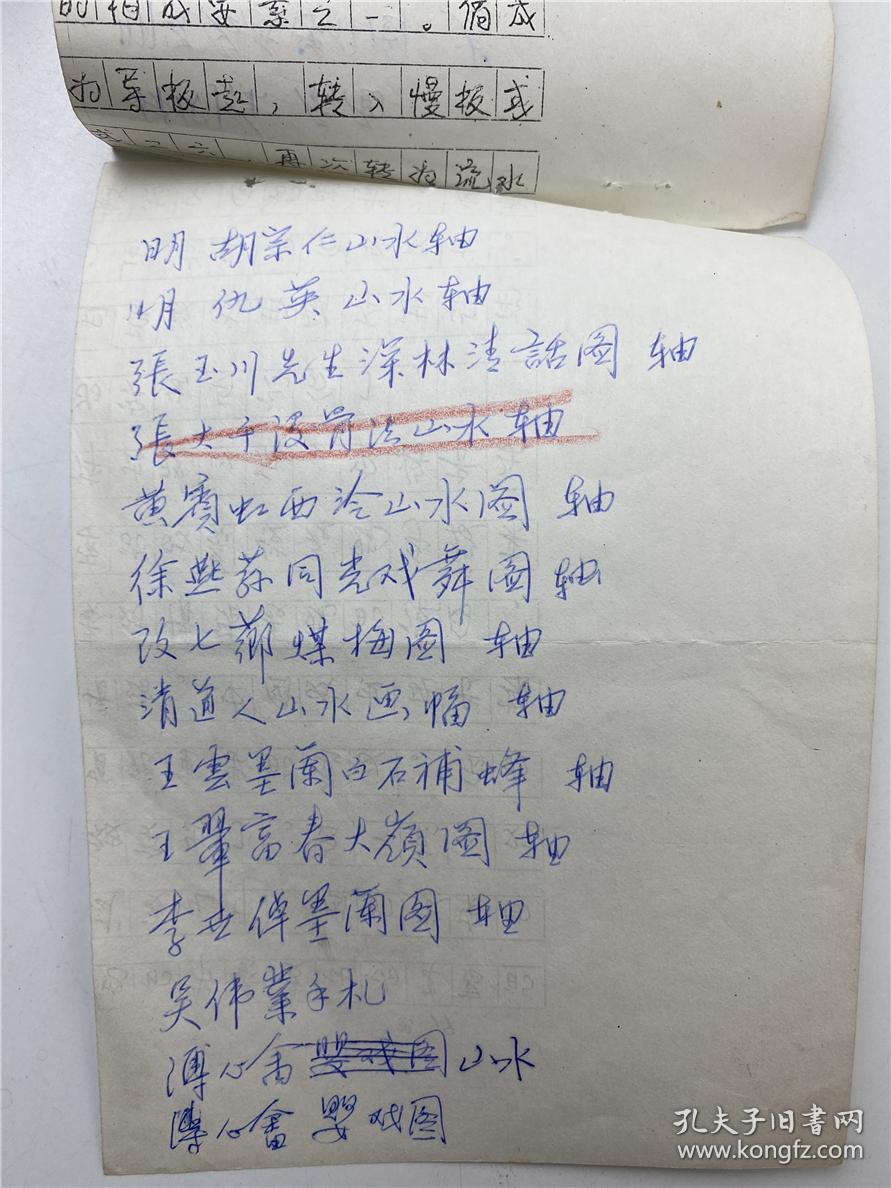 的相成要素之一。倘成
为导板起，转入慢板或
六，再次转为流水
明 胡宗仁山水轴
明 仇英山水轴
張玉川先生深林清話图 轴
張大千没骨法山水轴
黄賓虹西泠山水图 轴
徐燕荪同光戏舞图 轴
改七薌媒梅图 轴
清道人山水画幅 轴
王雲墨蘭白石補蜂 轴
王翬富春大嶺图 轴
李世倬墨蘭图 轴
吴伟業手札
溥心畬嬰戏图山水
溥心畬 嬰戏图
孔夫子旧书网
www.kongfz.com